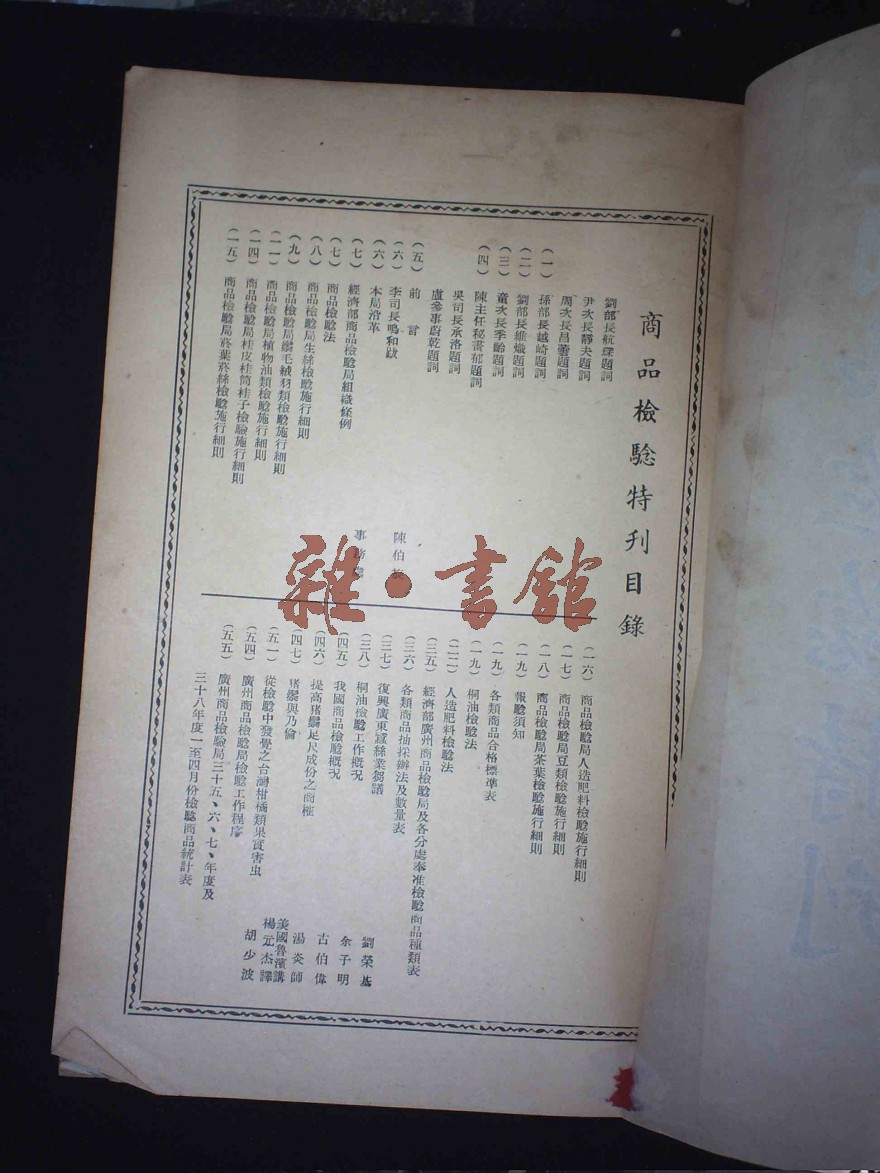 商品檢驗特刊目錄
劉部長航琛題詞
尹次長靜夫題詞
周次長昌蕓題詞
(一) 孫部長越崎題詞
(二) 劉部長維熾題詞
(三) 童次長季齡題詞
(四) 陳主任秘書郁題詞
吳司長承洛題詞
盧參事蔚乾題詞
(五) 前言
(六) 李司長鳴和跋 陳伯
(六) 本局沿革
(七) 經濟部商品檢驗局組織條例 事務
(七) 商品檢驗法
(八) 商品檢驗局生絲檢驗施行細則
(九) 商品檢驗局鬃毛絨羽類檢驗施行細則
(一一) 商品檢驗局植物油類檢驗施行細則
(一四) 商品檢驗局桂皮桂筒桂子檢驗施行細則
(一五) 商品檢驗局菸葉菸絲檢驗施行細則
(一六) 商品檢驗局人造肥料檢驗施行細則
(一七) 商品檢驗局豆類檢驗施行細則
(一八) 商品檢驗局茶葉檢驗施行細則
(一九) 報驗須知
(一九) 各類商品合格標準表
(一九) 桐油檢驗法
(二二) 人造肥料檢驗法
(三五) 經濟部廣州商品檢驗局及各分處奉准檢驗商品種類表
(三六) 各類商品抽採辦法及數量表
(三七) 復興廣東蠶絲業芻議 劉榮基
(三八) 桐油檢驗工作概況 余子明
(四五) 我國商品檢驗概況 古伯偉
(四六) 提高豬鬃足尺成份之商榷 湯炎師
(四七) 豬鬃與乃倫 美國魯濱講 楊元杰譯
(五一) 從檢驗中發覺之台灣柑橘類果實害虫 胡少波
(五四) 廣州商品檢驗局檢驗工作程序
(五五) 廣州商品檢驗局三十五、六、七、年度及
三十八年度一至四月份檢驗商品統計表
雜·書館